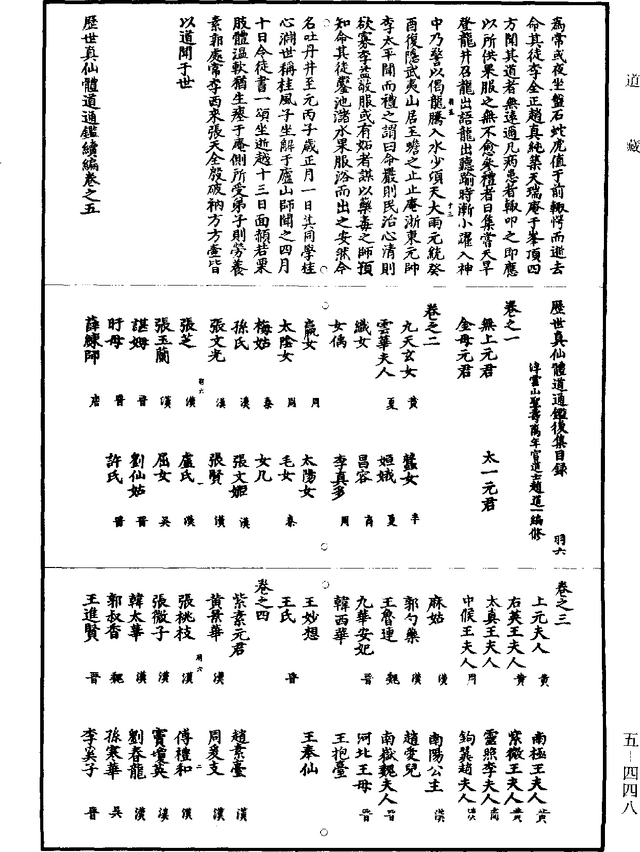 道藏
為常或夜坐盤石虵虎值于前輙愕而逝去
命其徒李全正趙真純築天瑞庵于峯頂四
方聞其道者無遠邇凡病患者輙叩之即應
以所供果服之無不愈參禮者日集嘗天旱
登龍井召龍出語龍出聽踰時漸小躍入神
中乃誓以偈龍騰入水少頃天大雨元統癸
酉復隱武夷山居玉蟾之止止庵浙東元帥
李太平聞而禮之謂曰命嚴則民治心清則
欲寡李益敬服或有妬者謀以藥毒之師預
知命其徒鑿池潴水果服浴而出之安然今
名吐丹井至元丙子歲正月一日其同學桂
心淵世稱桂風子坐解于廬山師聞之四月
十日令徒書一頌坐逝越十三日面頳若栗
肢體温軟猶生瘞于庵側所受弟子則勞養
素郭處常李西來張天全殷破衲方方壺皆
以道聞于世
歷世真仙體道通鑑續編卷之五
歷世真仙體道通鑑後集目錄 羽六
浮雲山聖壽萬年宮道士趙道一編修
卷之一
無上元君 太一元君
金母元君
卷之二
九天玄女 黃 蠶女 辛
雲華夫人 夏 姮娥 夏
織女 昌容 商
女偊 李真多 周
嬴女 周 太陽女
太陰女 周 毛女 秦
梅姑 秦 女几
孫氏 漢 張文姬 漢
張文光 漢 張賢 漢
張芝 漢 盧氏 漢
張玉蘭 漢 屈女 吳
諶姆 晉 劉仙姑 晉
盱母 晉 許氏 晉
薛練師 唐
卷之三
上元夫人 黃 南極王夫人 黃
右英王夫人 黃 紫微王夫人 黃
太真王夫人 靈照李夫人 商
中候王夫人 周 鉤翼趙夫人 漢
麻姑 漢 南陽公主 漢
郭勺藥 漢 趙愛兒
王魯連 魏 南嶽魏夫人 晉
九華安妃 晉 河北王母 晉
韓西華 王抱臺
王妙想 王奉仙
王氏 晉
卷之四
紫素元君 趙素臺 漢
黃景華 漢 周爰支 漢
張桃枝 漢 傅禮和 漢
張微子 漢 竇瓊英 漢
韓太華 漢 劉春龍 漢
郭叔香 魏 孫寒華 吳
王進賢 晉 李奚子 晉
五—四四八